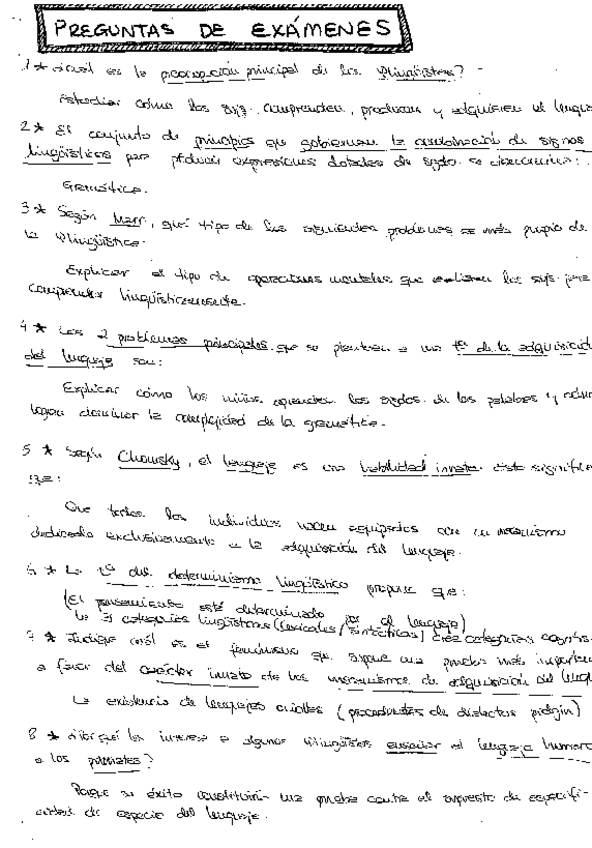 PREGUNTAS DE EXÁMENES
1 * ¿Cuál es la preocupación principal de los Ψlingüistas? -
Estudiar cómo los sujs. comprenden, producen y adquieren el lengua
2 * El conjunto de principios que gobiernan la combinación de signos
lingüísticos para producir expresiones dotadas de sgdo. se denomina:
Gramática.
3 * Según Marr, qué tipo de los siguientes problemas es más propio de
la Ψlingüística.
Explicar el tipo de operaciones mentales que realizan los sujs. para
comprender lingüísticamente.
4 * Los 2 problemas principales que se plantean a una tª de la adquisición
del lenguaje son:
Explicar cómo los niños aprenden los sgdos. de las palabras y cómo
logran dominar la complejidad de la gramática.
5 * Según Chomsky, el lenguaje es una habilidad innata. Esto significa
que:
Que todos los individuos nacen equipados con un mecanismo
dedicado exclusivamente a la adquisición del lenguaje.
6 * La tª del determinismo lingüístico propone que:
(El pensamiento está determinado por el lenguaje)
categorías lingüísticas (lexicales / sintácticas) categorías
7 * Indique cuál es el fenómeno que supone una prueba más importan
a favor del carácter innato de los mecanismos de adquisición del lengu
La existencia de lenguajes criollos (procedentes de dialectos pidgin)
8 * ¿Por qué les interesa a algunos Ψlingüistas enseñar el lenguaje humano
a los primates?
Porque su éxito constituiría una prueba contra el supuesto de especifi-
cidad de especie del lenguaje.